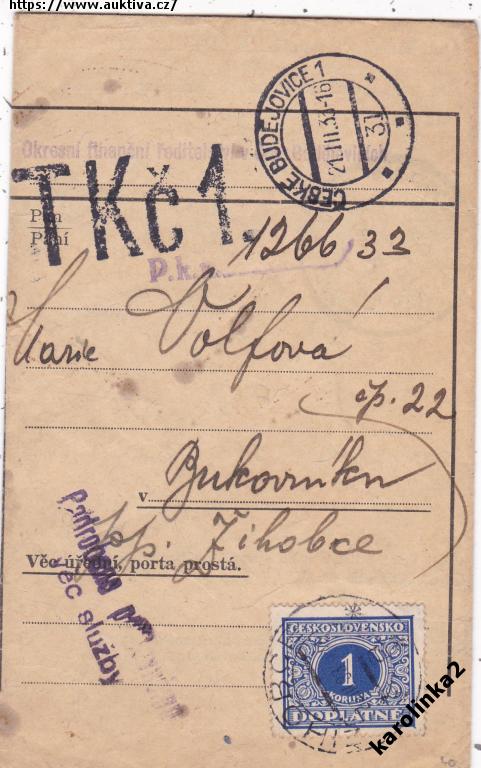 https://www.auktiva.cz/
ČESKÉ BUDĚJOVICE 1
21.III.33-16
31
Okresní finanční ředitelství
TKč 1.
Pan
Paní
P.k.
1266 33
Marie Volfová
čp. 22
v Bukovníku
pp. Žihobce
Věc úřední, porta prostá.
Podrobeno
věc služby
ČESKOSLOVENSKO
1
KORUNA
DOPLATNÉ
karolinka2